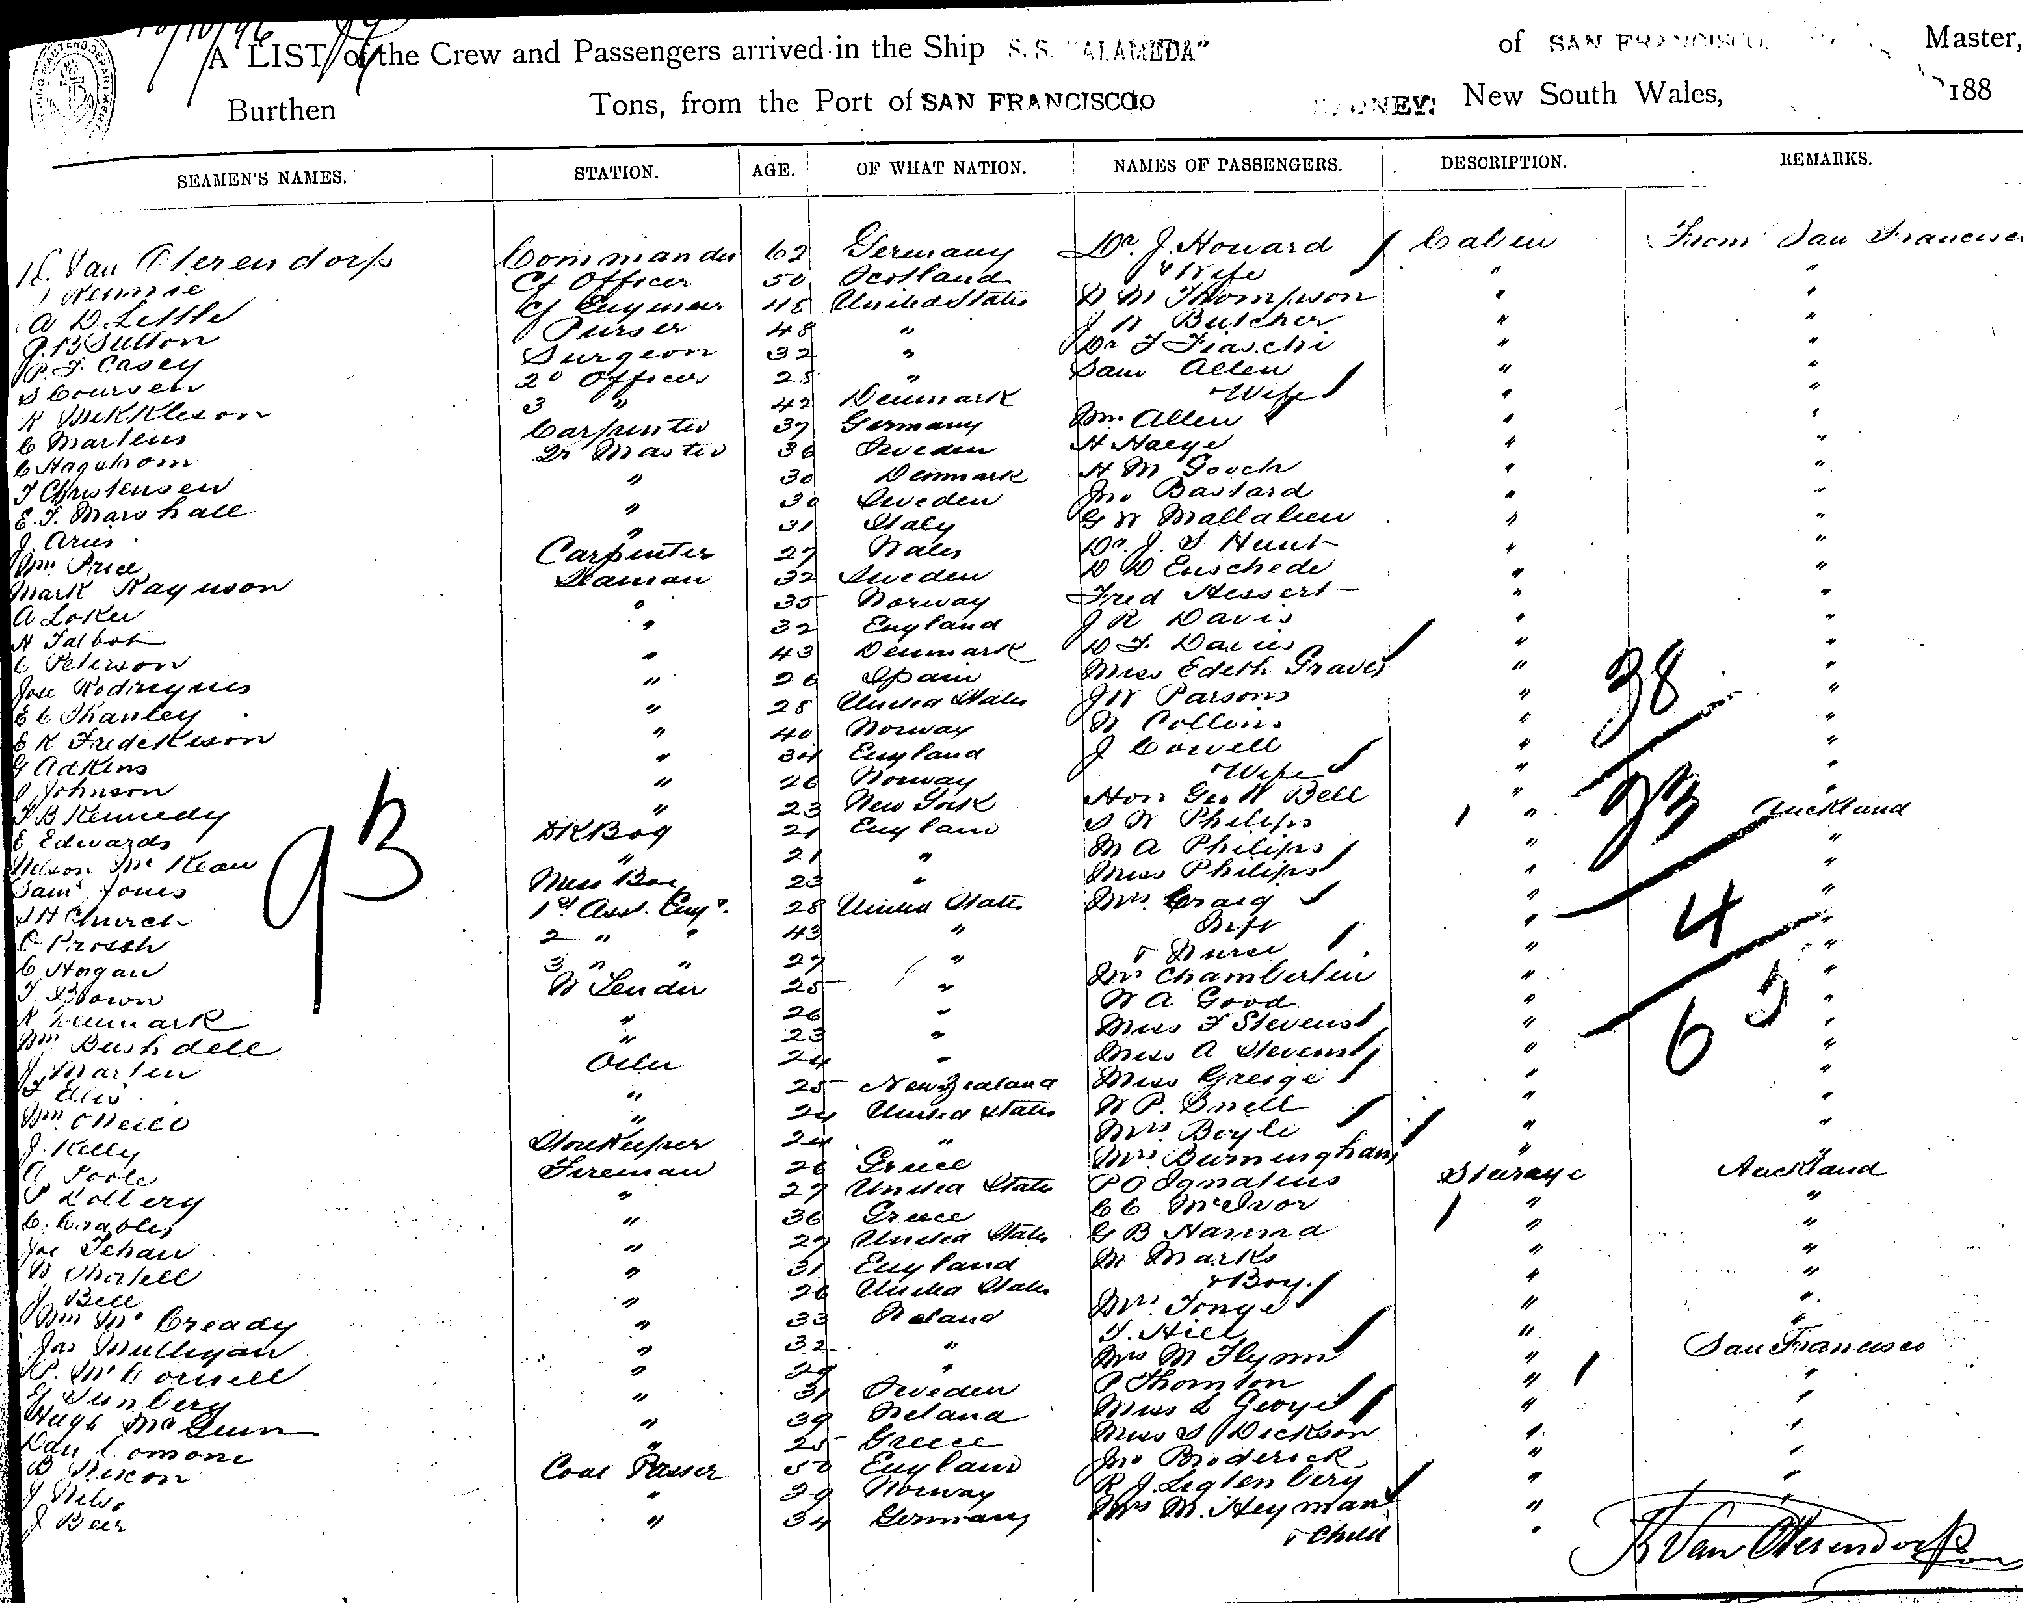 10/10/96
A LIST of the Crew and Passengers arrived in the Ship S.S. "ALAMEDA" of SAN FRANCISCO Master,
Burthen Tons, from the Port of SAN FRANCISCO SYDNEY: New South Wales, 188
SEAMEN'S NAMES. STATION. AGE. OF WHAT NATION. NAMES OF PASSENGERS. DESCRIPTION. REMARKS.
Van Oterendorp Commander 62 Germany Dr. J. Howard Cabin From San Francisco
Ch Officer 50 Scotland & Wife " "
A D. Little Ch Engineer 48 United States Thompson " "
J. B Sutton Purser 48 " J W Butcher " "
P. F. Casey Surgeon 32 " Dr T Fiaschi " "
S Coursen 2d Officer 28 " Sam Allen " "
Mikkleson 3 " 42 Denmark & Wife " "
C Martens Carpenter 37 Germany Wm Allen " "
C Hagstrom Qr Master 36 Sweden H Haege " "
T Christensen " 30 Denmark H M Gooch " "
E. F. Marshall " 30 Sweden Jno Bastard " "
J. Arus " 31 Italy G W Mallalieu " "
Wm Price Carpenter 27 Wales Dr. J. S Hunt " "
Mark Seaman 32 Sweden Enschede " "
A Loker " 35 Norway Fred Hessert " "
H Talbot " 32 England J R Davis " "
C Peterson " 43 Denmark D F Davies " "
Jose Rodrigues " 26 Spain Miss Edith Graves " "
E C " 28 United States J W Parsons " "
E K " 40 Norway W Collins " "
G Adkins " 34 England J Cowell " "
J Johnson " 26 Norway & Wife " "
F B Kennedy " 23 New York Hon Geo W Bell " "
E Edwards 21 England S W Philips " Auckland
Nelson Mc Kean " 21 " M A Philips " "
Saml Jones Mess Boy 23 " Miss Philips " "
S H Church 1st Asst. Engr. 28 United States Mrs Craig " "
2 " " 43 " " "
C Horgan 3 " " 27 " & Nurse " "
T. Brown W Tender 25 " Mrs Chamberlin " "
Denmark " 26 " W A Good " "
Wm Bushdell " 23 " Miss F Stevens " "
J Martin Oiler 24 " Miss A Stevens " "
" 25 New Zealand Miss Greige " "
Wm O'Neill " 24 United States W P. Snell " "
J. Kelly Storekeeper 24 " Mrs Boyle " "
A Poole Fireman 26 Greece Mrs Burningham " "
" 27 United States P O Ignatius Steerage Auckland
" 36 Greece C C McIvor " "
Joe Tehan " 27 United States G B Hanna " "
" 31 England M Marks " "
J Bell " 26 United States & Boy " "
Wm Mc Cready " 33 Ireland Mrs Tonge " "
Jas Mulligan " 32 " T. Hill " "
" 29 " Mrs M Flynn " San Francisco
" 31 Sweden P Thornton " "
Hugh " 39 Ireland Miss L George " "
" 25 Greece Miss S Dickson " "
B Nixon Coal Passer 50 England Jno Broderick " "
" 29 Norway R J. Ligtenberg " "
J Beer " 34 Germany Mrs M. Heyman " "
& Child "
93
38
23
4
65
Van Oterendorp